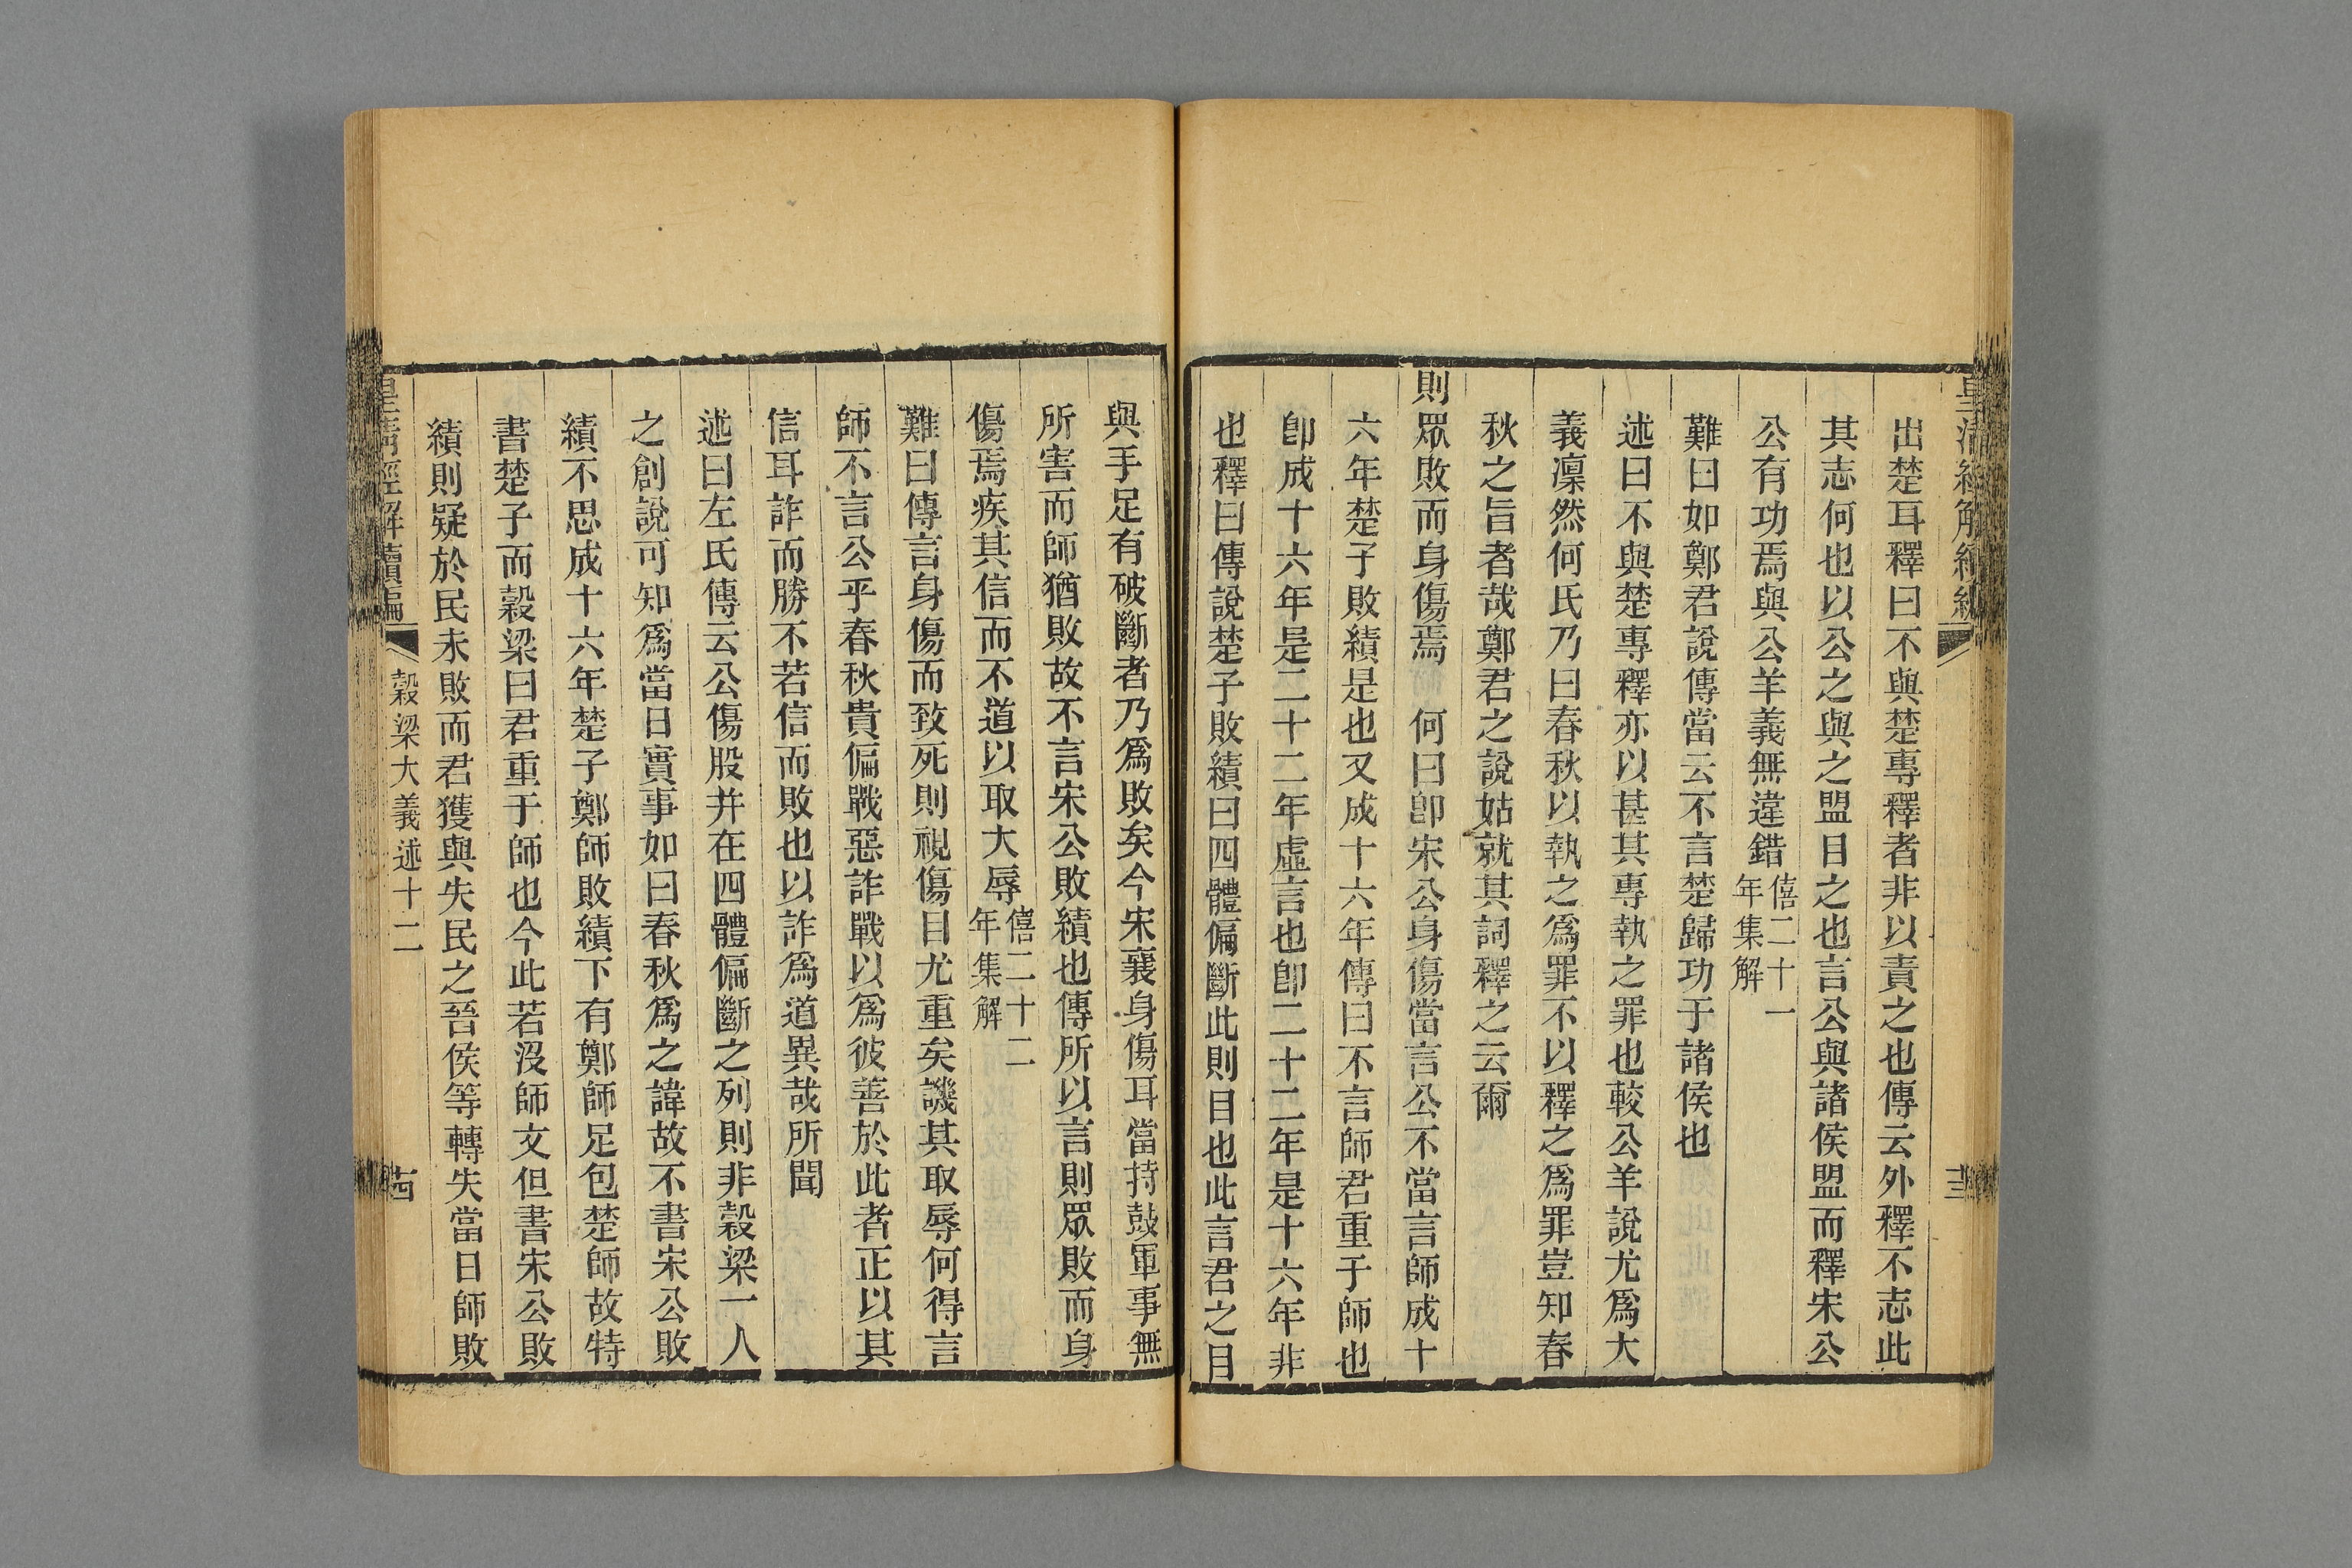 皇清經解續編
出楚耳釋曰不與楚專釋者非以責之也傳云外釋不志此
其志何也以公之與之盟目之也言公與諸侯盟而釋宋公
公有功焉與公羊義無違錯僖二十一年集解
難曰如鄭君說傳當云不言楚歸功于諸侯也
述曰不與楚專釋亦以甚其專執之罪也較公羊說尤爲大
義凜然何氏乃曰春秋以執之爲罪不以釋之爲罪豈知春
秋之旨者哉鄭君之說姑就其詞釋之云爾
則眾敗而身傷焉 何曰卽宋公身傷當言公不當言師成十
六年楚子敗績是也又成十六年傳曰不言師君重于師也
卽成十六年是二十二年虛言也卽二十二年是十六年非
也釋曰傳說楚子敗績曰四體偏斷此則目也此言君之目
與手足有破斷者乃爲敗矣今宋襄身傷耳當持鼓軍事無
所害而師猶敗故不言宋公敗績也傳所以言則眾敗而身
傷焉疾其信而不道以取大辱僖二十二年集解
難曰傳言身傷而致死則視傷目尤重矣譏其取辱何得言
師不言公乎春秋貴偏戰惡詐戰以爲彼善於此者正以其
信耳詐而勝不若信而敗也以詐爲道異哉所聞
述曰左氏傳云公傷股并在四體偏斷之列則非穀梁一人
之創說可知爲當日實事如曰春秋爲之諱故不書宋公敗
績不思成十六年楚子鄭師敗績下有鄭師足包楚師故特
書楚子而穀梁曰君重于師也今此若沒師文但書宋公敗
績則疑於民未敗而君獲與失民之晉侯等轉失當日師敗
皇清經解續編 穀梁大義述十二 十四